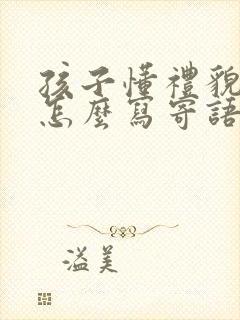 孩子懂禮貌
怎麼寫寄語
溢美